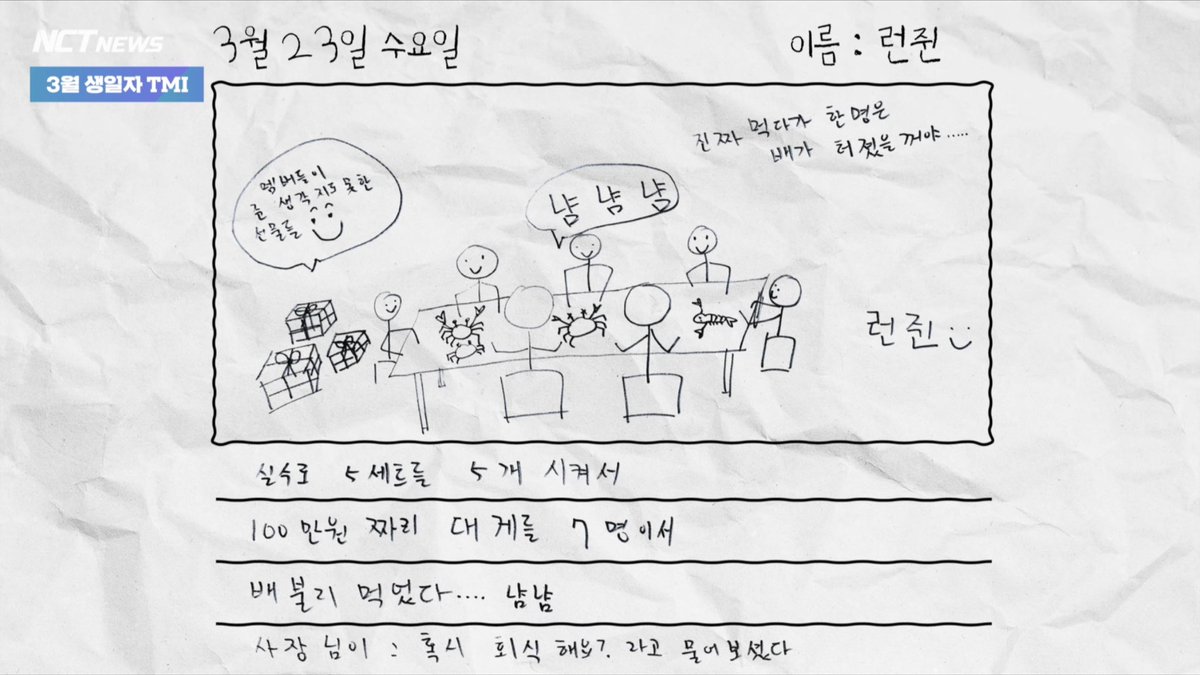 NCT NEWS
3월 생일자 TMI
3월 23일 수요일
이름 : 런쥔
진짜 먹다가 한 명은
배가 터졌을 꺼야.....
멤버들이
준 생각지도 못한
선물들
냠 냠 냠
런쥔
실수로 5세트를 5개 시켜서
100만원 짜리 대게를 7명이서
배불리 먹었다.... 냠냠
사장님이 : 혹시 회식해요? 라고 물어보셨다